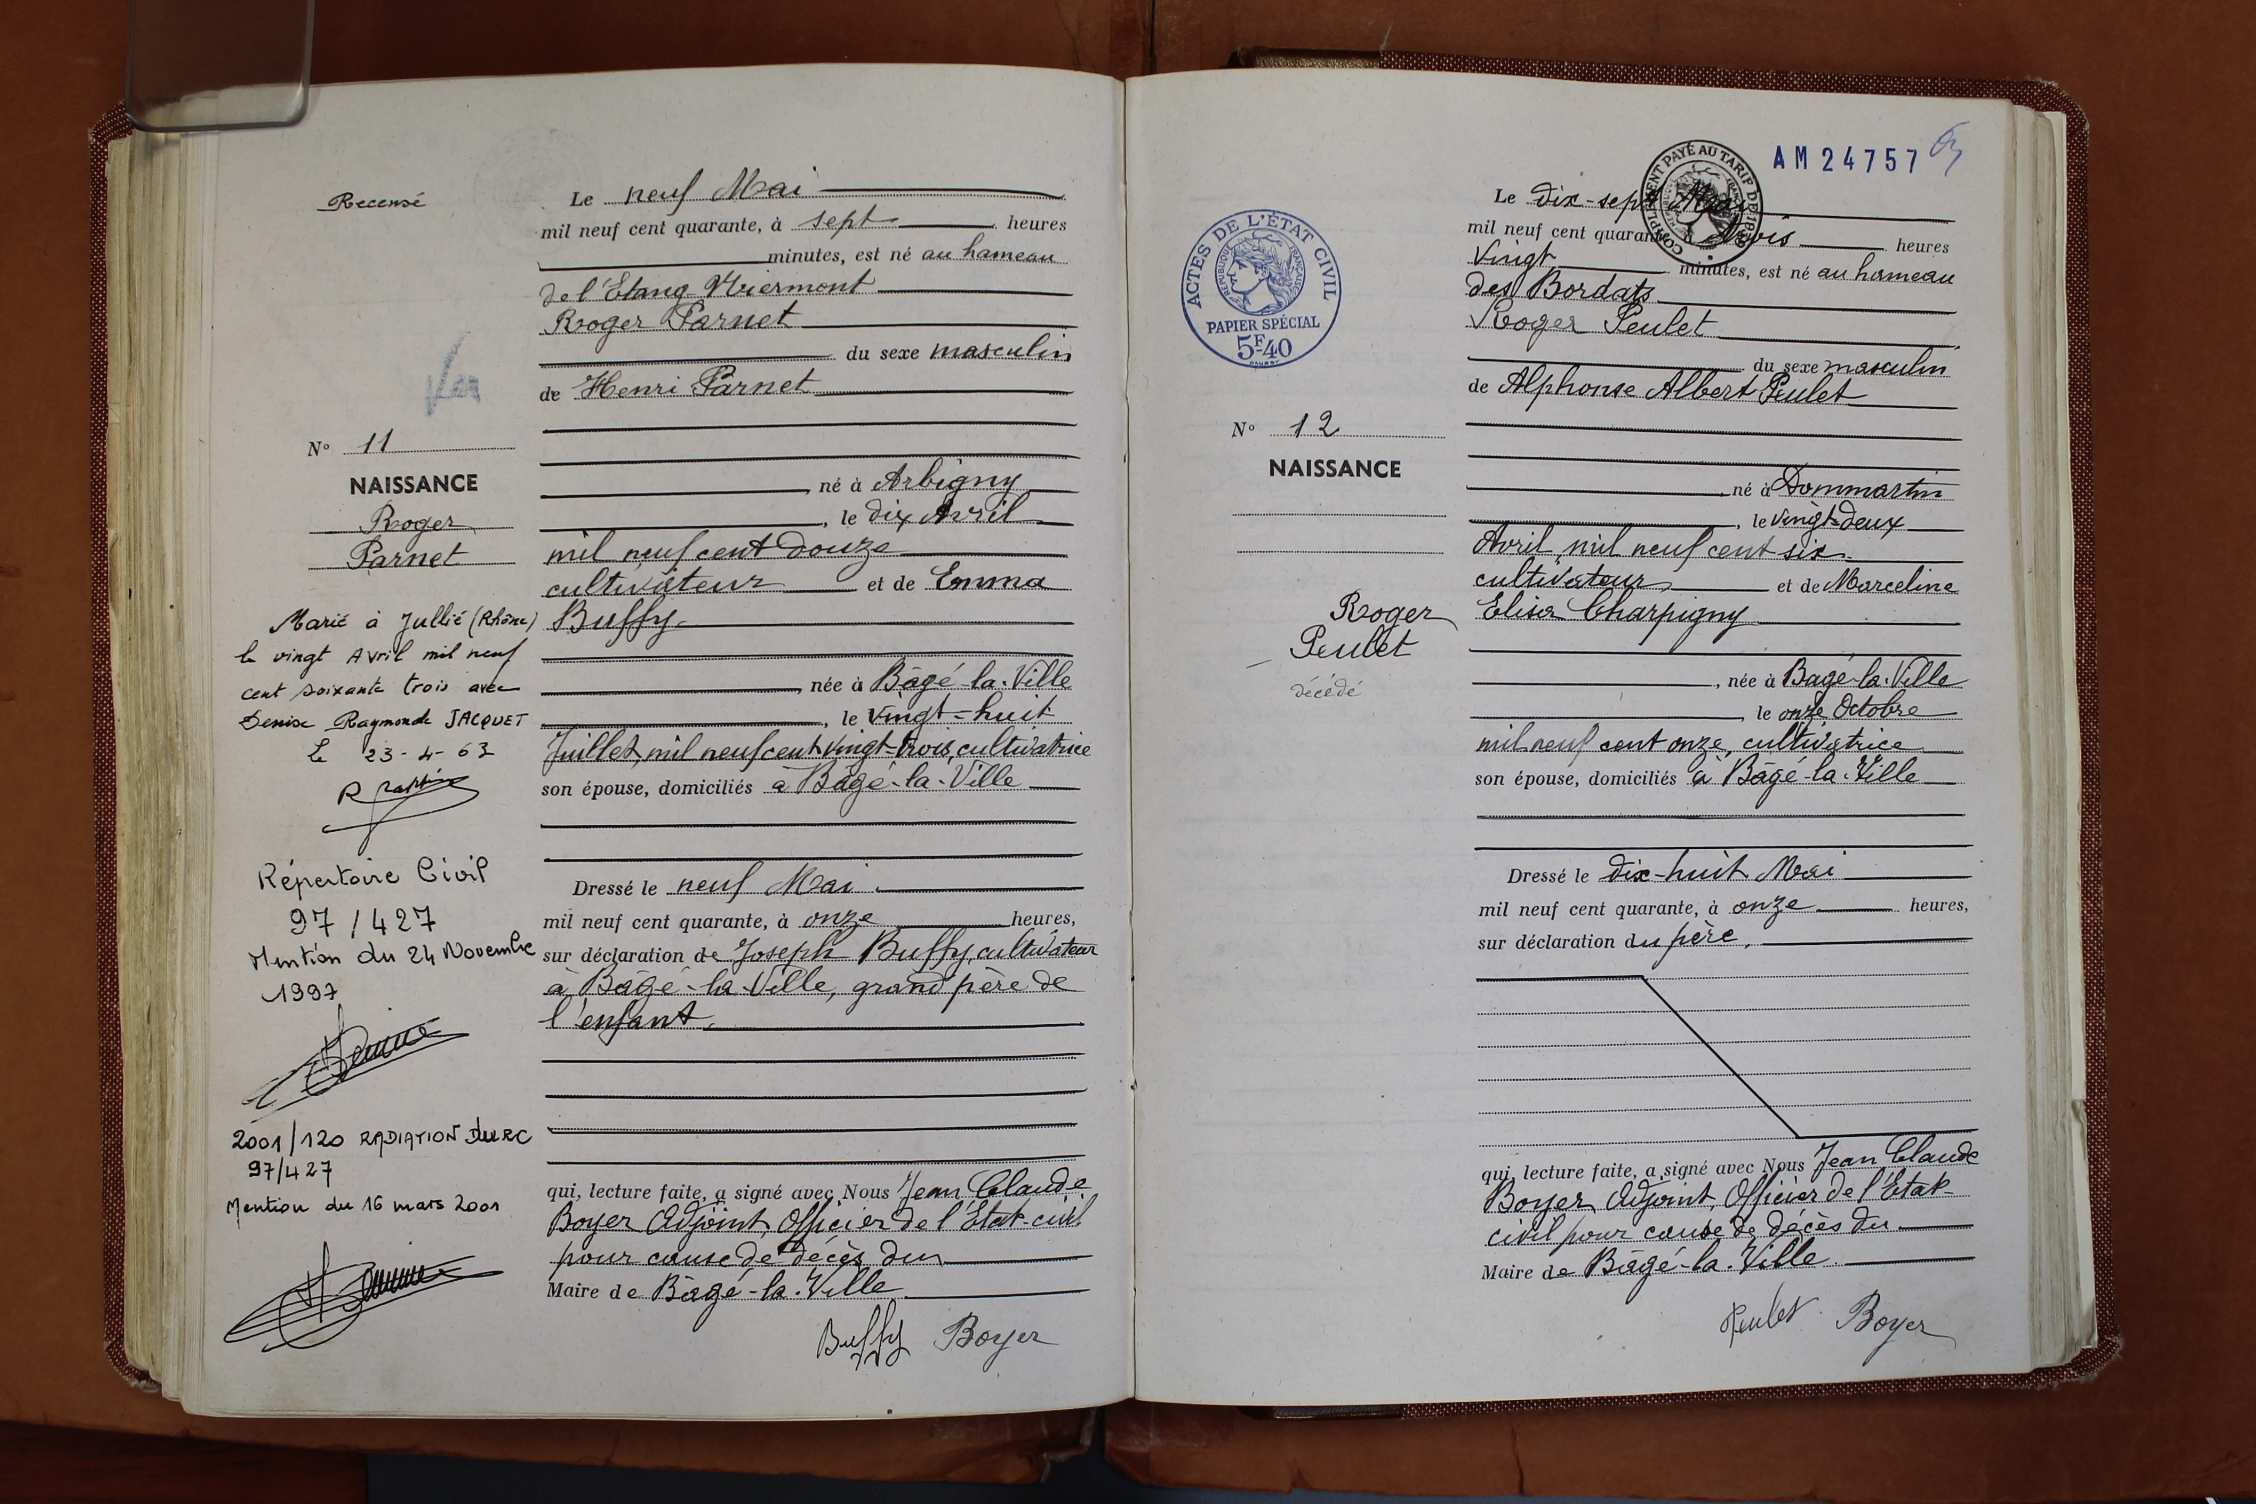 Recensé
Le neuf Mai
mil neuf cent quarante, à sept heures
minutes, est né au hameau
de l'Etang Niermont
Roger Parnet
du sexe masculin
de Henri Parnet
N° 11
NAISSANCE
Roger
Parnet
né à Arbigny
, le dix Avril
mil neuf cent douze
cultivateur et de Emma
Buffy
née à Bâgé-la-Ville
, le vingt-huit
Juillet mil neuf cent vingt-trois, cultivatrice
son épouse, domiciliés à Bâgé-la-Ville
Marié à Jullié (Rhône)
le vingt Avril mil neuf
cent soixante trois avec
Denise Raymonde JACQUET
Le 23-4-63
Répertoire Civil
97/427
Mention du 24 Novembre
1997
2001/120 RADIATION DU RC
97/427
Mention du 16 mars 2001
Dressé le neuf Mai
mil neuf cent quarante, à onze heures,
sur déclaration de Joseph Buffy, cultivateur
à Bâgé-la-Ville, grand père de
l'enfant.
qui, lecture faite, a signé avec Nous Jean Claude
Boyer Adjoint, Officier de l'Etat-civil
pour cause de décès du
Maire de Bâgé-la-Ville
Buffy Boyer
AM 24757
COMPLÉMENT PAYÉ AU TARIF DE
ACTES DE L'ÉTAT CIVIL
RÉPUBLIQUE FRANÇAISE
PAPIER SPÉCIAL
5F40
Le dix-sept Mai
mil neuf cent quarante, à trois heures
vingt minutes, est né au hameau
des Bordats
Roger Peulet
du sexe masculin
de Alphonse Albert Peulet
N° 12
NAISSANCE
Roger
Peulet
décédé
né à Dommartin
, le vingt-deux
Avril mil neuf cent six
cultivateur, et de Marceline
Elisa Charpigny
, née à Bâgé-la-Ville
, le onze Octobre
mil neuf cent onze, cultivatrice
son épouse, domiciliés à Bâgé-la-Ville
Dressé le dix-huit Mai
mil neuf cent quarante, à onze heures,
sur déclaration du père,
qui, lecture faite, a signé avec Nous Jean Claude
Boyer Adjoint, Officier de l'Etat-
civil pour cause de décès du
Maire de Bâgé-la-Ville
Peulet Boyer